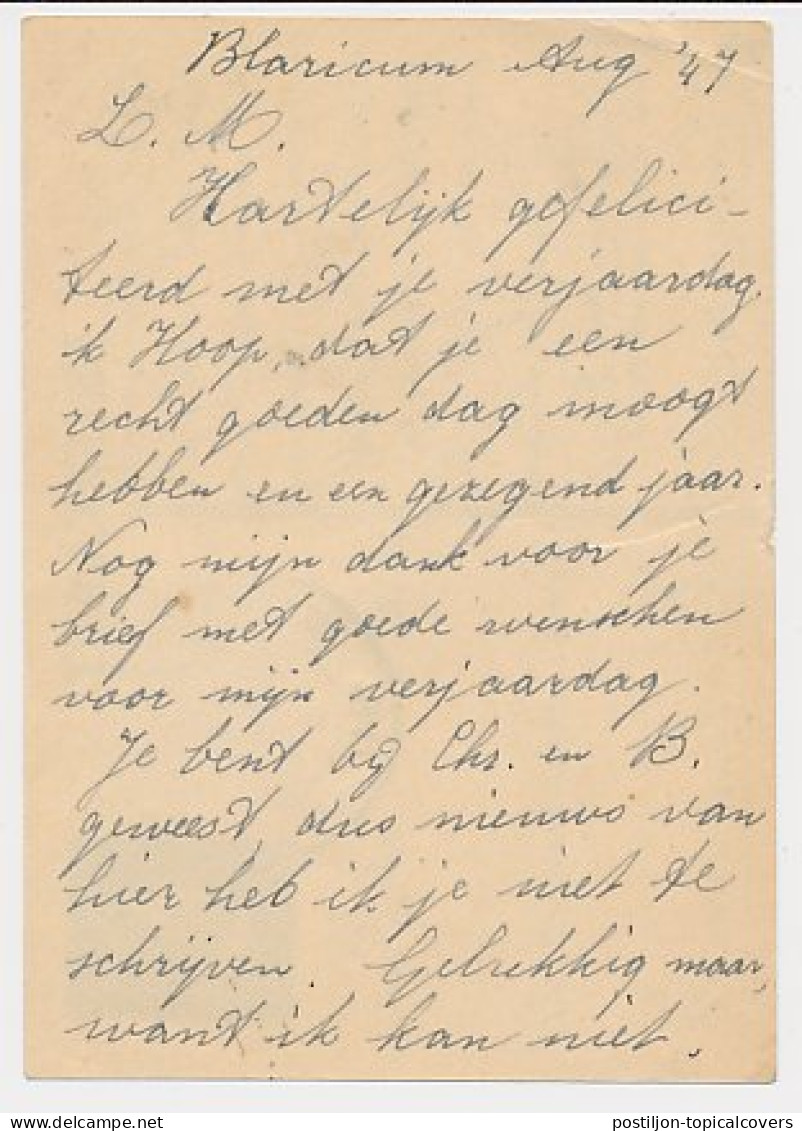 Blaricum Aug '47
L. M.
Hartelijk gefelici-
teerd met je verjaardag.
ik Hoop, dat je een
recht goeden dag moogt
hebben en een gezegend jaar.
Nog mijn dank voor je
brief met goede wenschen
voor mijn verjaardag.
Je bent bij Chr. en B.
geweest, dus nieuws van
hier heb ik je niet te
schrijven. Gelukkig maar,
want ik kan niet.
postiljon-topicalcovers